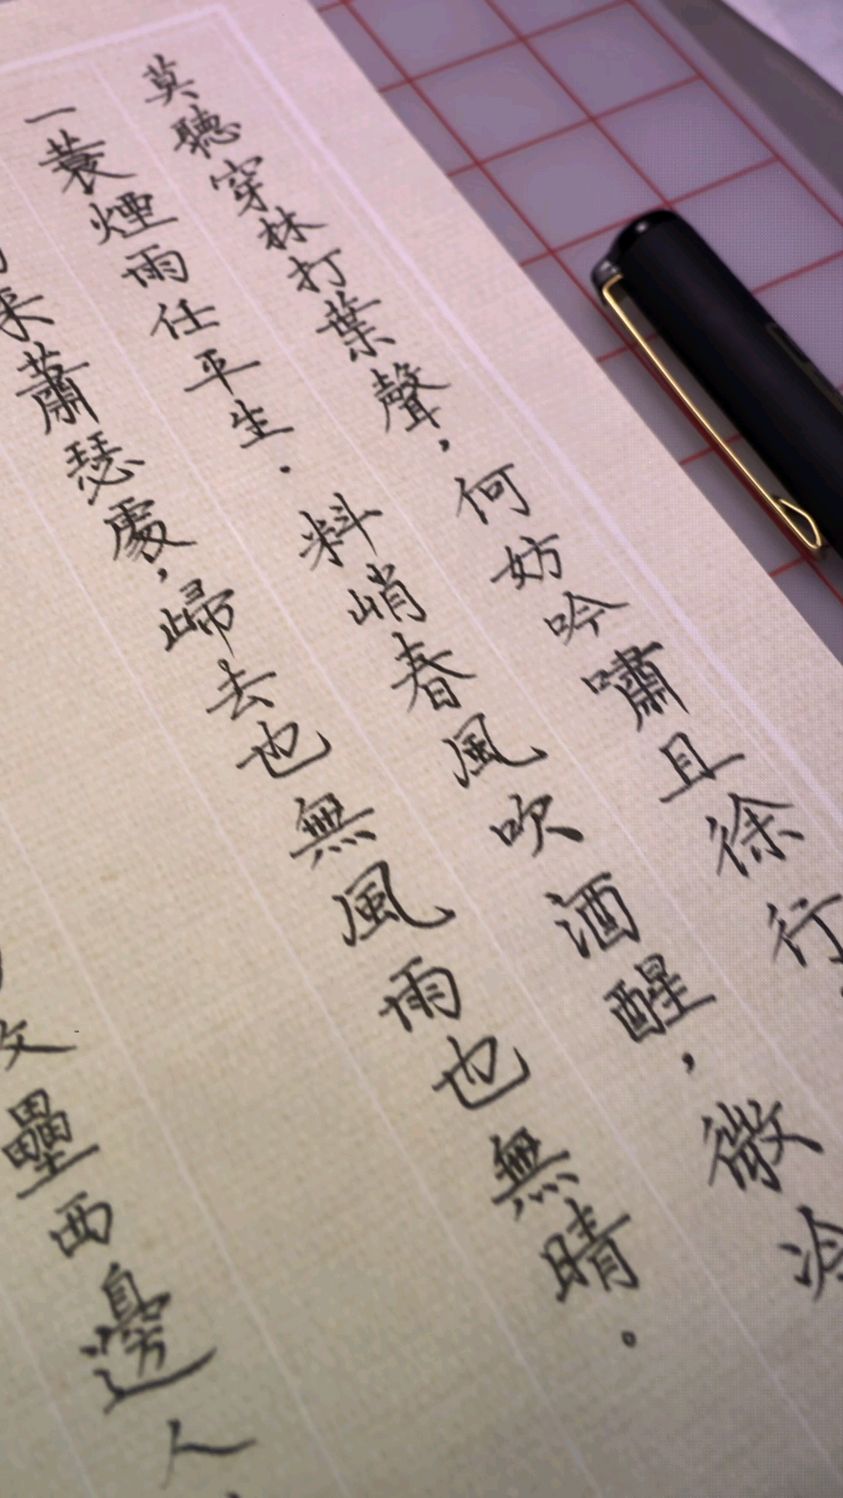 莫聽穿林打葉聲，何妨吟嘯且徐行
一蓑煙雨任平生．料峭春風吹酒醒，微冷
來蕭瑟處，歸去也無風雨也無晴．
壘西邊人